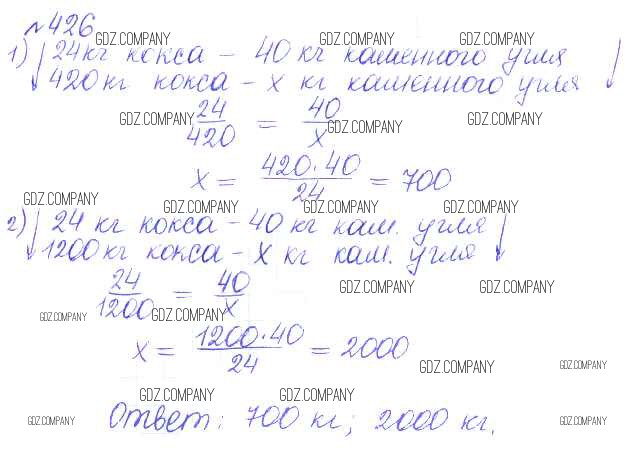 №426
1) 24 кг кокса – 40 кг каменного угля
420 кг кокса – x кг каменного угля
24/420 = 40/x
x = 420·40/24 = 700
2) 24 кг кокса – 40 кг кам. угля
1200 кг кокса – x кг кам. угля
24/1200 = 40/x
x = 1200·40/24 = 2000
Ответ: 700 кг; 2000 кг.
GDZ.COMPANY GDZ.COMPANY GDZ.COMPANY
GDZ.COMPANY GDZ.COMPANY GDZ.COMPANY
GDZ.COMPANY GDZ.COMPANY GDZ.COMPANY GDZ.COMPANY
GDZ.COMPANY GDZ.COMPANY
GDZ.COMPANY GDZ.COMPANY
GDZ.COMPANY GDZ.COMPANY
GDZ.COMPANY GDZ.COMPANY
GDZ.COMPANY GDZ.COMPANY GDZ.COMPANY